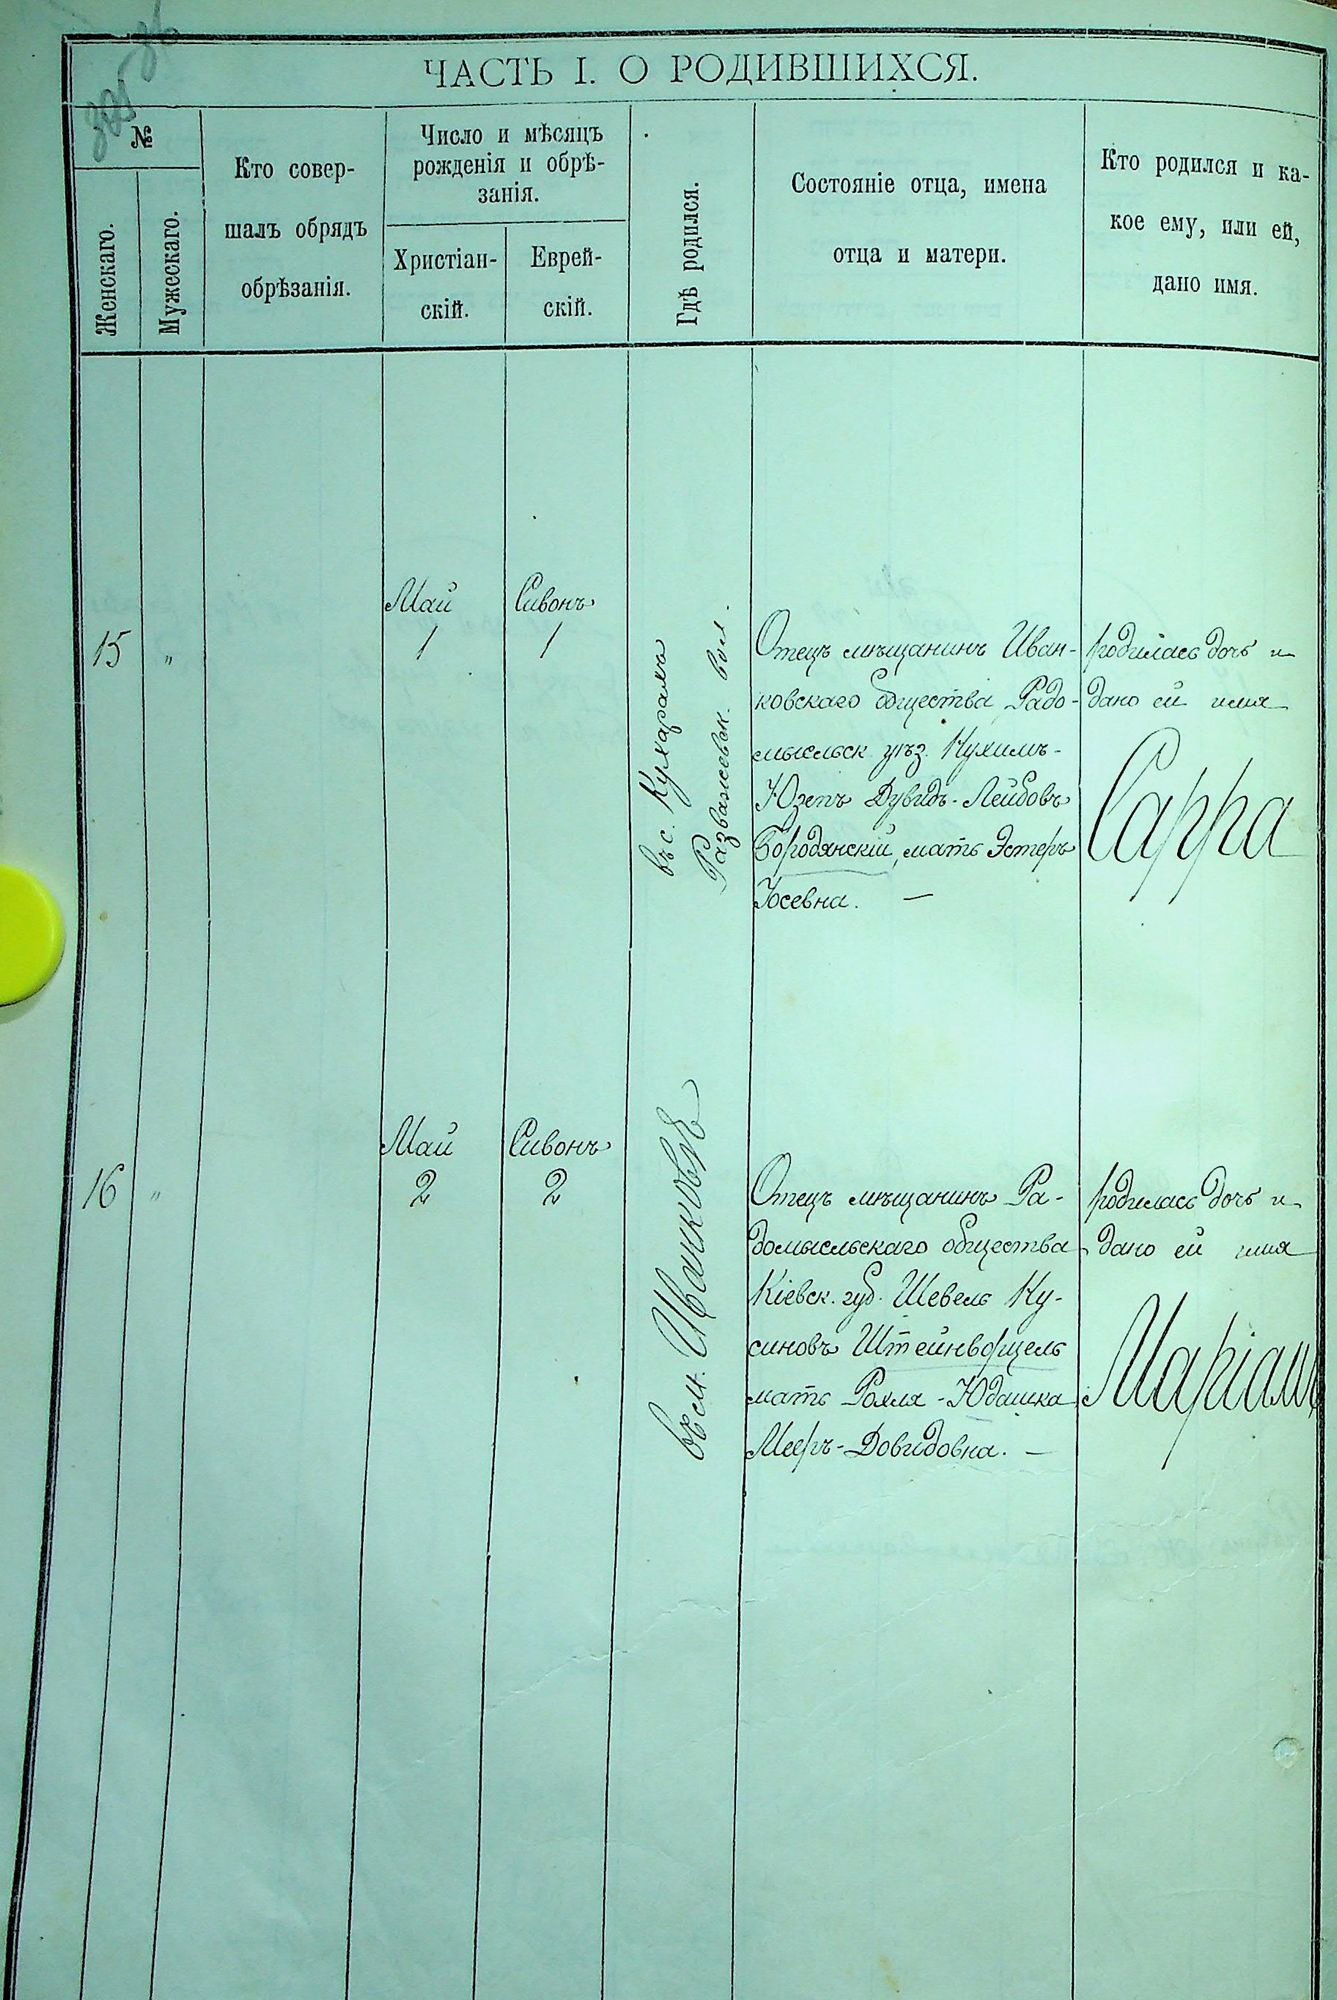 ЧАСТЬ I. О РОДИВШИХСЯ.
№
Женскаго.
Мужескаго.
Кто совер-
шалъ обрядъ
обрѣзанія.
Число и мѣсяцъ
рожденія и обрѣ-
занія.
Христіан-
скій.
Еврей-
скій.
Гдѣ родился.
Состояніе отца, имена
отца и матери.
Кто родился и ка-
кое ему, или ей,
дано имя.
15
"
Май
1
Сивонъ
1
въ с. Кухарахъ
Розважевск. вол.
Отецъ мѣщанинъ Иван-
ковскаго общества Радо-
мысльск. уѣз. Нухимъ-
Юзепъ Дувидъ-Лейбовъ
Бородянскій, мать Эстеръ
Іосевна. —
родилась дочь и
дано ей имя
Сарра
16
"
Май
2
Сивонъ
2
въ м. Иванковѣ
Отецъ мѣщанинъ Ра-
домысльскаго общества
Кіевск. губ. Шевель Ну-
синовъ
мать Рохля-Юдашка
Меер-Довидовна. —
родилась дочь и
дано ей имя
Маріамъ